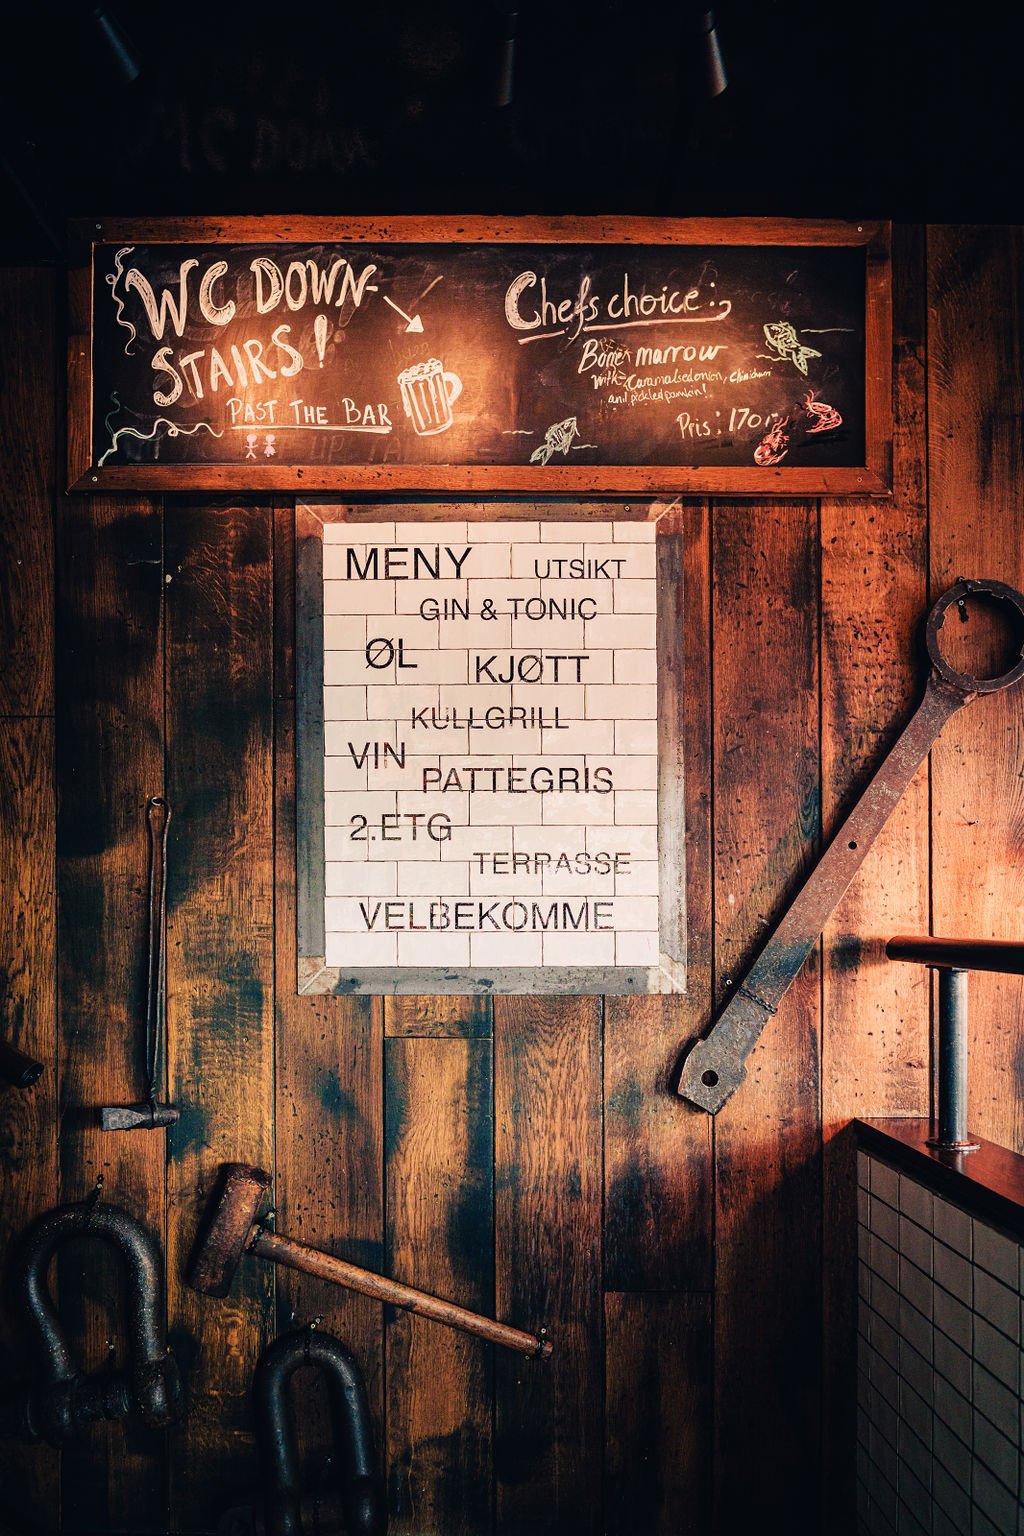 WC DOWN-
STAIRS!
PAST THE BAR
Chefs choice:
Bone marrow
with Caramalsedonion,
and pickled
Pris: 170,-
MENY
UTSIKT
GIN & TONIC
ØL
KJØTT
KULLGRILL
VIN
PATTEGRIS
2.ETG
TERRASSE
VELBEKOMME